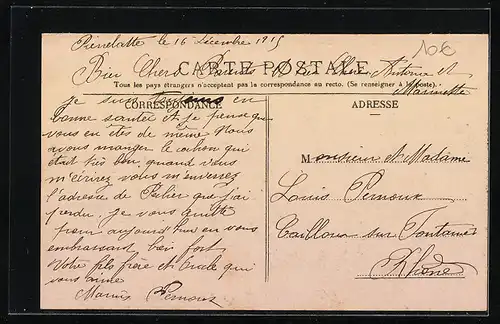 Pierrelatte le 16 Décembre 1915
10€
Bien Chers Parents et Chers Antoine et
CARTE POSTALE
Marinette
Tous les pays étrangers n'acceptent pas la correspondance au recto. (Se renseigner à la poste).
CORRESPONDANCE
je suis toujours en
bonne santée et je pense que
vous en êtes de même Nous
avons manger le cochon qui
était très bon, quand vous
m'écrirez vous m'enverrez
l'adresse de que j'ai
perdu. je vous quitte
pour aujourd'hui en vous
embrassant bien fort
Votre fils frère et Oncle qui
vous aime
Marius Pernoux
ADRESSE
Monsieur et Madame
Louis Pernoux
Cailloux sur Fontaines
Rhône